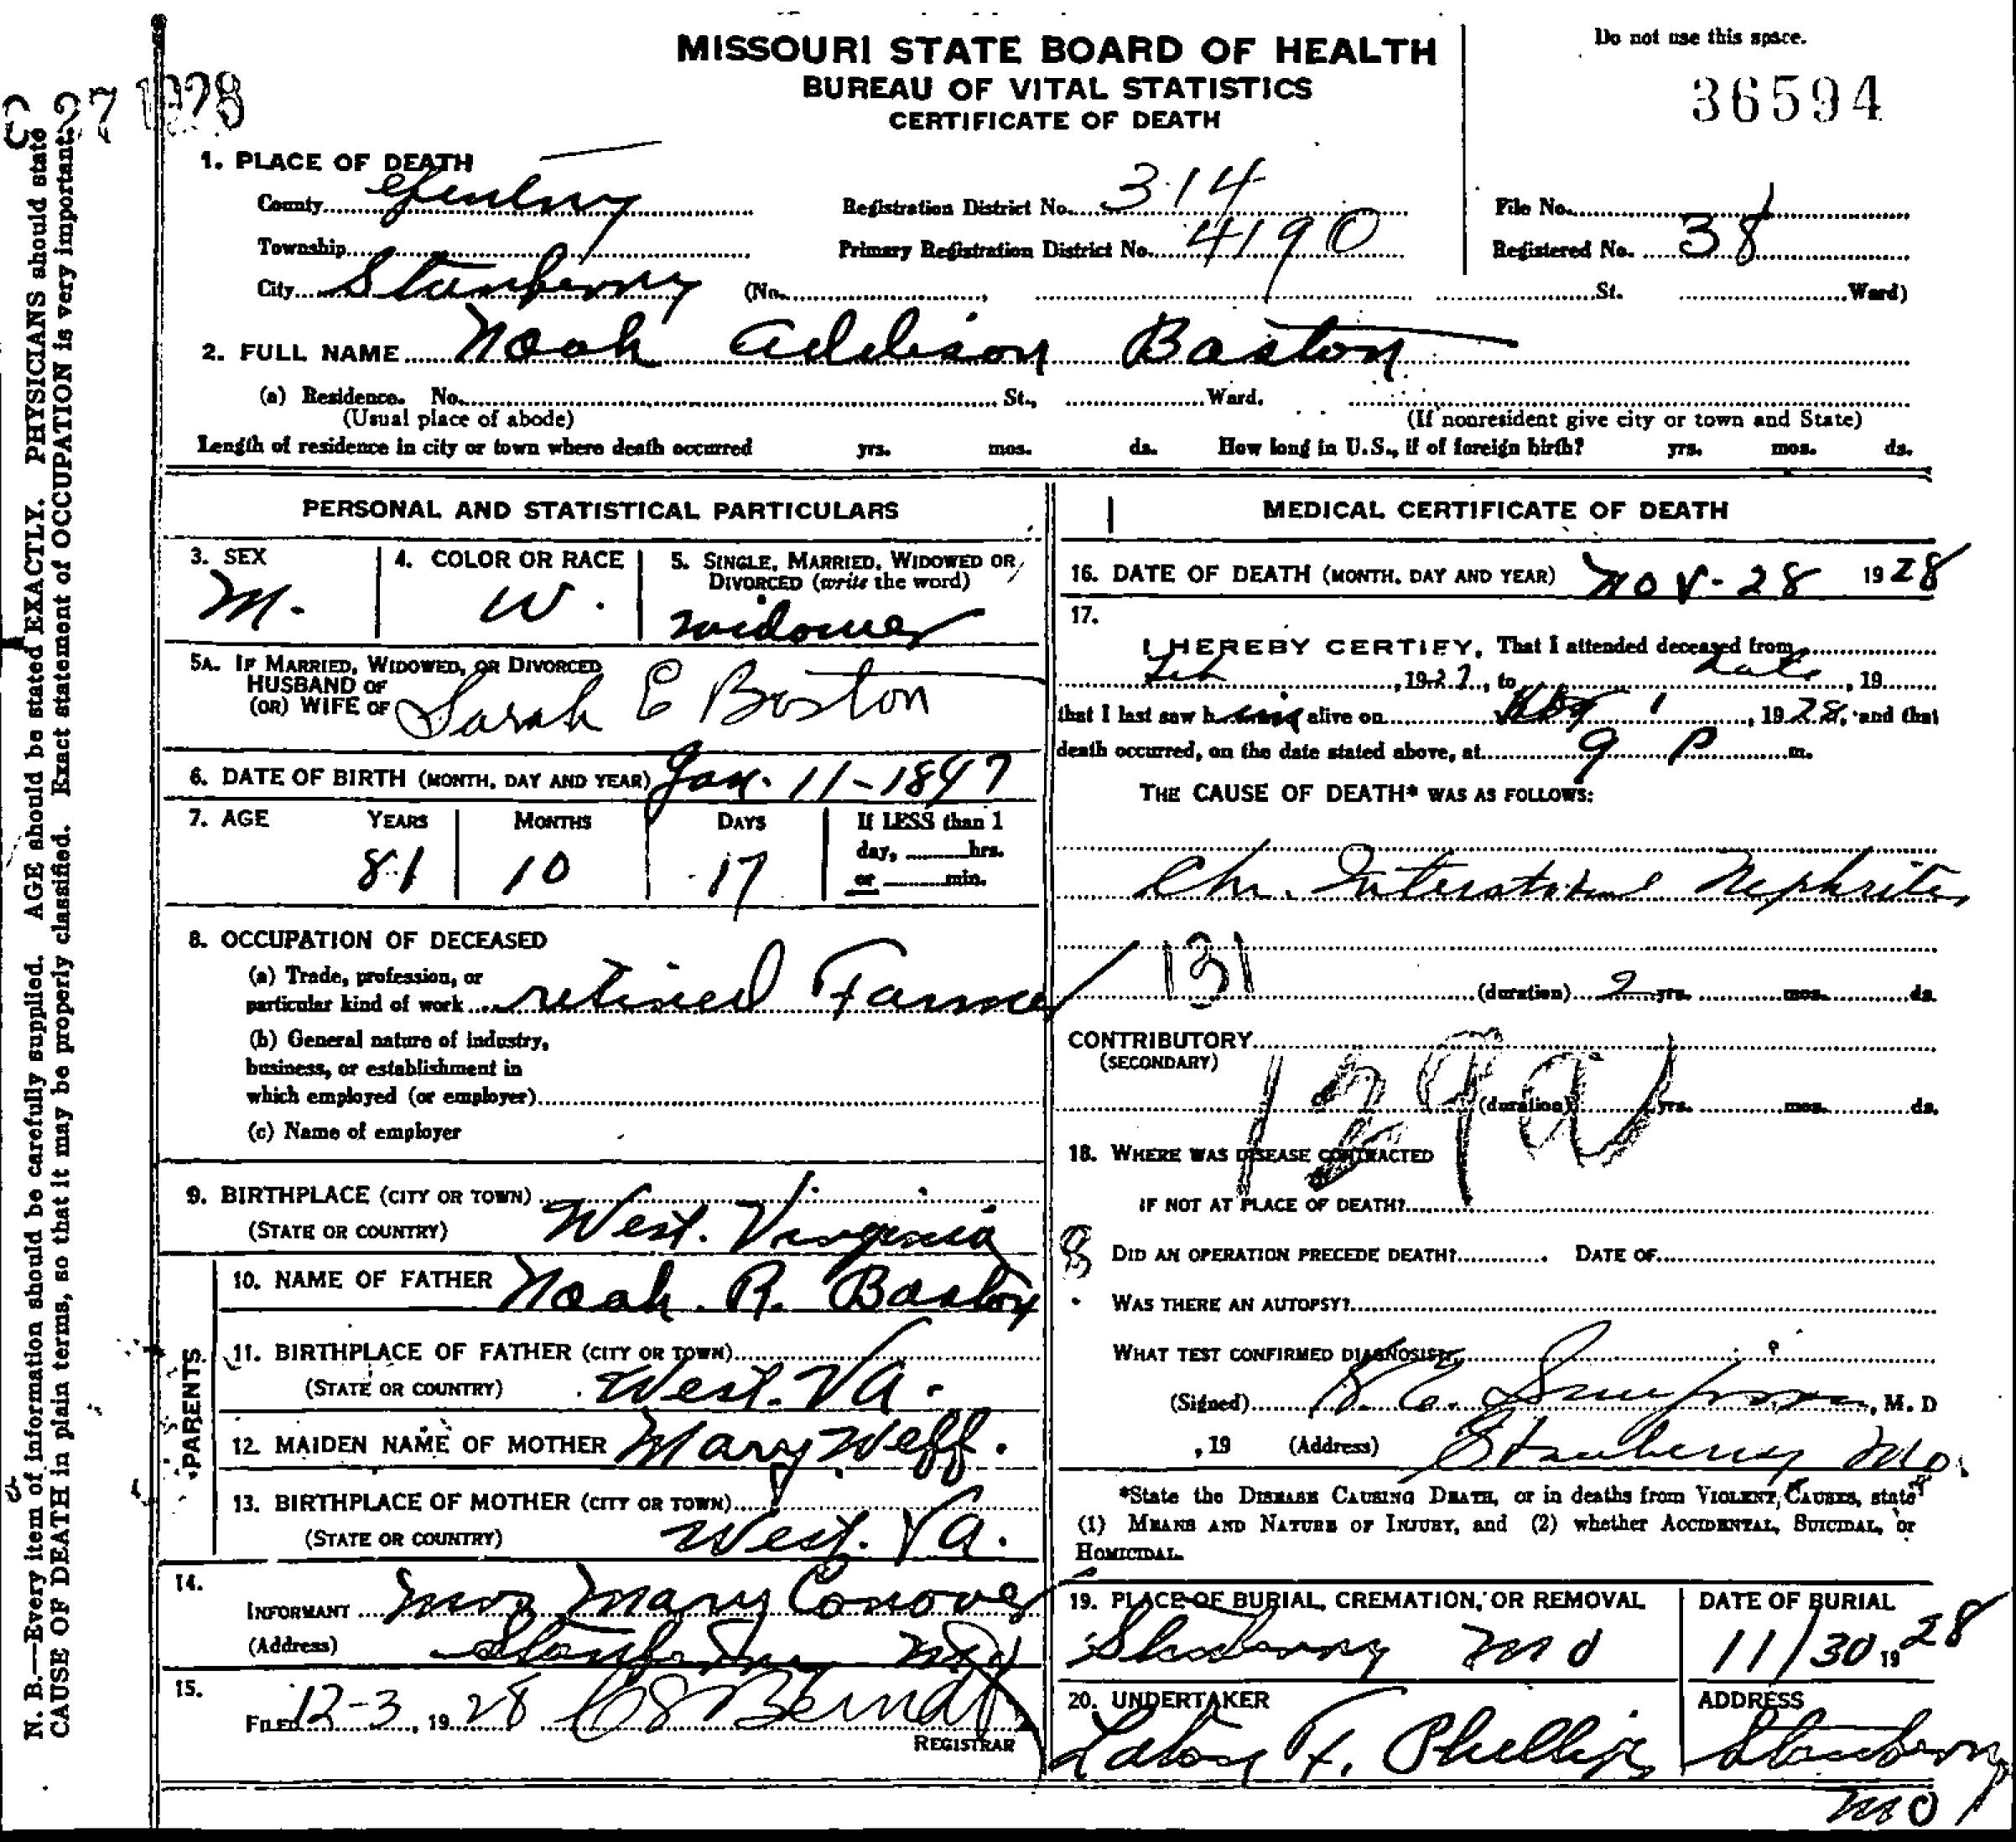 MISSOURI STATE BOARD OF HEALTH
BUREAU OF VITAL STATISTICS
CERTIFICATE OF DEATH
Do not use this space.
36594
27 1928
N. B.—Every item of information should be carefully supplied. AGE should be stated EXACTLY. PHYSICIANS should state
CAUSE OF DEATH in plain terms, so that it may be properly classified. Exact statement of OCCUPATION is very important.
1. PLACE OF DEATH
County Gentry Registration District No. 314 File No.
Township Primary Registration District No. 4190 Registered No. 38
City Stanberry (No. , St. Ward)
2. FULL NAME Noah Addison Baston
(a) Residence. No. St., Ward.
(Usual place of abode) (If nonresident give city or town and State)
Length of residence in city or town where death occurred yrs. mos. ds. How long in U.S., if of foreign birth? yrs. mos. ds.
PERSONAL AND STATISTICAL PARTICULARS
3. SEX 4. COLOR OR RACE 5. SINGLE, MARRIED, WIDOWED OR
DIVORCED (write the word)
M. W. widower
5A. IF MARRIED, WIDOWED, OR DIVORCED
HUSBAND OF
(OR) WIFE OF Sarah E Boston
6. DATE OF BIRTH (MONTH, DAY AND YEAR) Jan. 11-1847
7. AGE YEARS MONTHS DAYS If LESS than 1
day, hrs.
or min.
81 10 17
8. OCCUPATION OF DECEASED
(a) Trade, profession, or
particular kind of work retired Farmer
(b) General nature of industry,
business, or establishment in
which employed (or employer)
(c) Name of employer
9. BIRTHPLACE (CITY OR TOWN)
(STATE OR COUNTRY) West. Virginia
PARENTS
10. NAME OF FATHER Noah. R. Baston
11. BIRTHPLACE OF FATHER (CITY OR TOWN)
(STATE OR COUNTRY) West. Va.
12. MAIDEN NAME OF MOTHER Mary Neff.
13. BIRTHPLACE OF MOTHER (CITY OR TOWN)
(STATE OR COUNTRY) West. Va.
14.
INFORMANT Mrs Mary Conover
(Address) Stanberry Mo
15.
FILED 12-3, 1928
REGISTRAR
MEDICAL CERTIFICATE OF DEATH
16. DATE OF DEATH (MONTH, DAY AND YEAR) Nov-28 1928
17.
I HEREBY CERTIFY, That I attended deceased from
Feb, 1927, to date, 19
that I last saw him alive on 1, 1928, and that
death occurred, on the date stated above, at 9 P m.
THE CAUSE OF DEATH* WAS AS FOLLOWS:
Chr. Interstitial Nephritis
131
(duration) 2 yrs. mos. ds.
CONTRIBUTORY
(SECONDARY)
129a
(duration) yrs. mos. ds.
18. WHERE WAS DISEASE CONTRACTED
IF NOT AT PLACE OF DEATH?
8 DID AN OPERATION PRECEDE DEATH? DATE OF
WAS THERE AN AUTOPSY?
WHAT TEST CONFIRMED DIAGNOSIS?
(Signed) Simpson, M. D
, 19 (Address) Stanberry Mo.
*State the DISEASE CAUSING DEATH, or in deaths from VIOLENT CAUSES, state
(1) MEANS AND NATURE OF INJURY, and (2) whether ACCIDENTAL, SUICIDAL, or
HOMICIDAL.
19. PLACE OF BURIAL, CREMATION, OR REMOVAL DATE OF BURIAL
Stanberry Mo 11/30 1928
20. UNDERTAKER ADDRESS
F. Phillips Stanberry
Mo